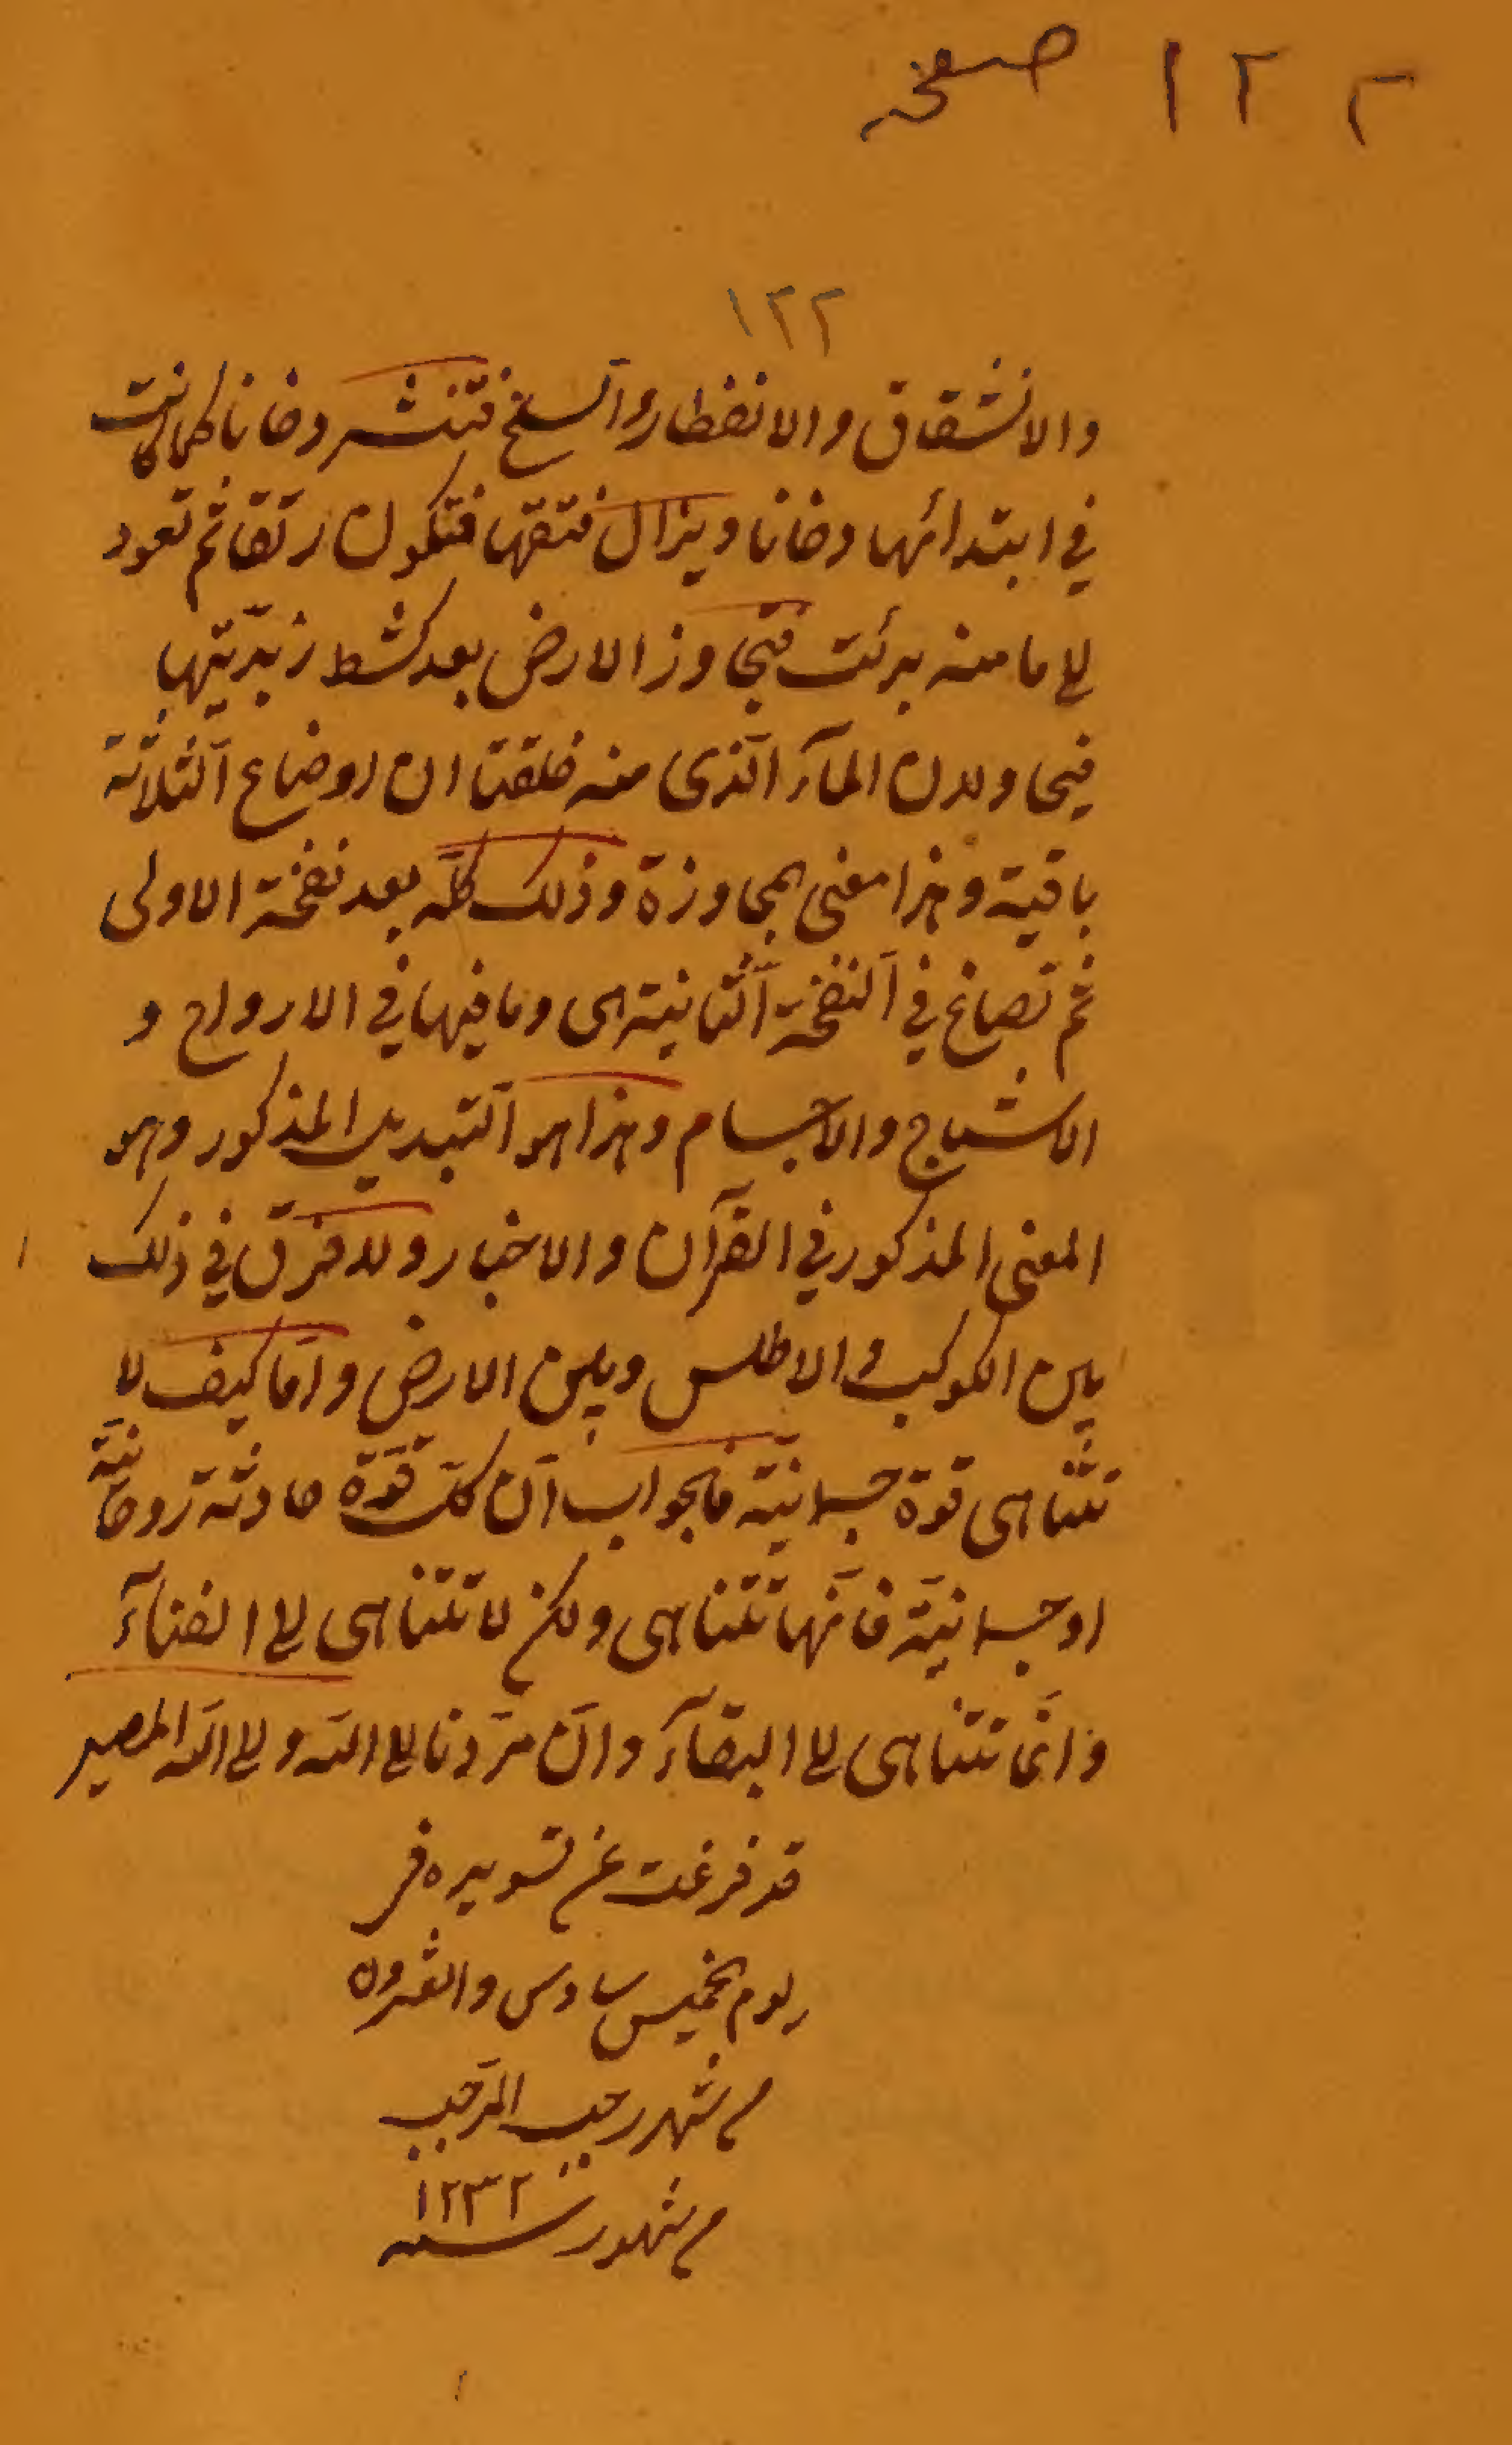 ١٢٢ صفحه
١٢٢
والانشقاق والانفطار والسلخ فتنشر دخانا كما كانت
في ابتدائها دخانا ويزال فتقها فتكون رتقا ثم تعود
الى ما منه بدئت فتجاوز الارض بعد كشط زبديتها
فيجاوران المآء الّذى منه خلقتا ان اوضاع الثلاثة
باقية وهذا معنى المجاوزة وذلك كلّه بعد نفخة الاولى
ثم تصاغ في النفخة الثّانية هى وما فيها في الارواح و
الاشباح والاجسام وهذا هو التبديل المذكور وهو
المعنى المذكور في القرآن والاخبار ولا فرق في ذلك
بين الكوكب والاطلس وبين الارض وامّا كيف لا
تتناهى قوة جسمانيّة فالجواب انّ كلّ قوّة حادثة روحانيّة
او جسمانيّة فانّها تتناهى ولكن لا تتناهى الى الفنآء
وانّما تتناهى الى البقآء وانّ مردّنا الى الله والى الله المصير
قد فرغت من تسويده في
يوم الخميس سادس والعشرون
من شهر رجب المرجّب
من شهور سنة ١٢٣٢